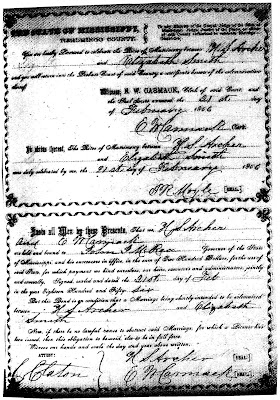 THE STATE OF MISSISSIPPI,
TISHOMINGO COUNTY.
You are hereby Licensed to celebrate the Rites of Matrimony between H S Archer
and Elizabeth Smith
and you will return into the Probate Court of said County a certificate hereof
Witness, R. W. CARMACK, Clerk of said Court, and
the Seal thereof 21st day of
February 1856
C W Carmack Clerk
In virtue thereof, The Rites of Matrimony between H S Archer
and Elizabeth Smith
were duly celebrated by me, the 21st day of February 1856
[SEAL.]
Know all Men by these Presents, That we, H S Archer
and C W Carmack
are held and bound to John J McRae Governor of the State
of Mississippi, and his successors in office, in the sum of Two Hundred Dollars, for the use of
said State, for which payment we bind ourselves, our heirs, executors and administrators, jointly
and severally. Signed, sealed and dated the 21st day of Feb
the year Eighteen Hundred and Fifty Six
But this Bond is on condition that a Marriage being shortly intended to be celebrated
between H S Archer and Elizabeth
Smith
Now, if there be no lawful cause to obstruct said Marriage, for which a License has
been issued, then this obligation to be void, else to be in full force.
Witness our hands and seals the day and year above written.
ATTEST: H S Archer [SEAL.]
C W Carmack [SEAL.]